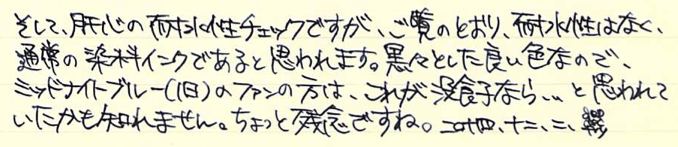 そして、肝心の耐水性チェックですが、ご覧のとおり、耐水性はなく、
通常の染料インクであると思われます。黒々とした良い色なので、
ミッドナイトブルー(旧)のファンの方は、これが没食子なら、、と思われて
いたかも知れません。ちょっと残念ですね。二〇十四、十二、二、